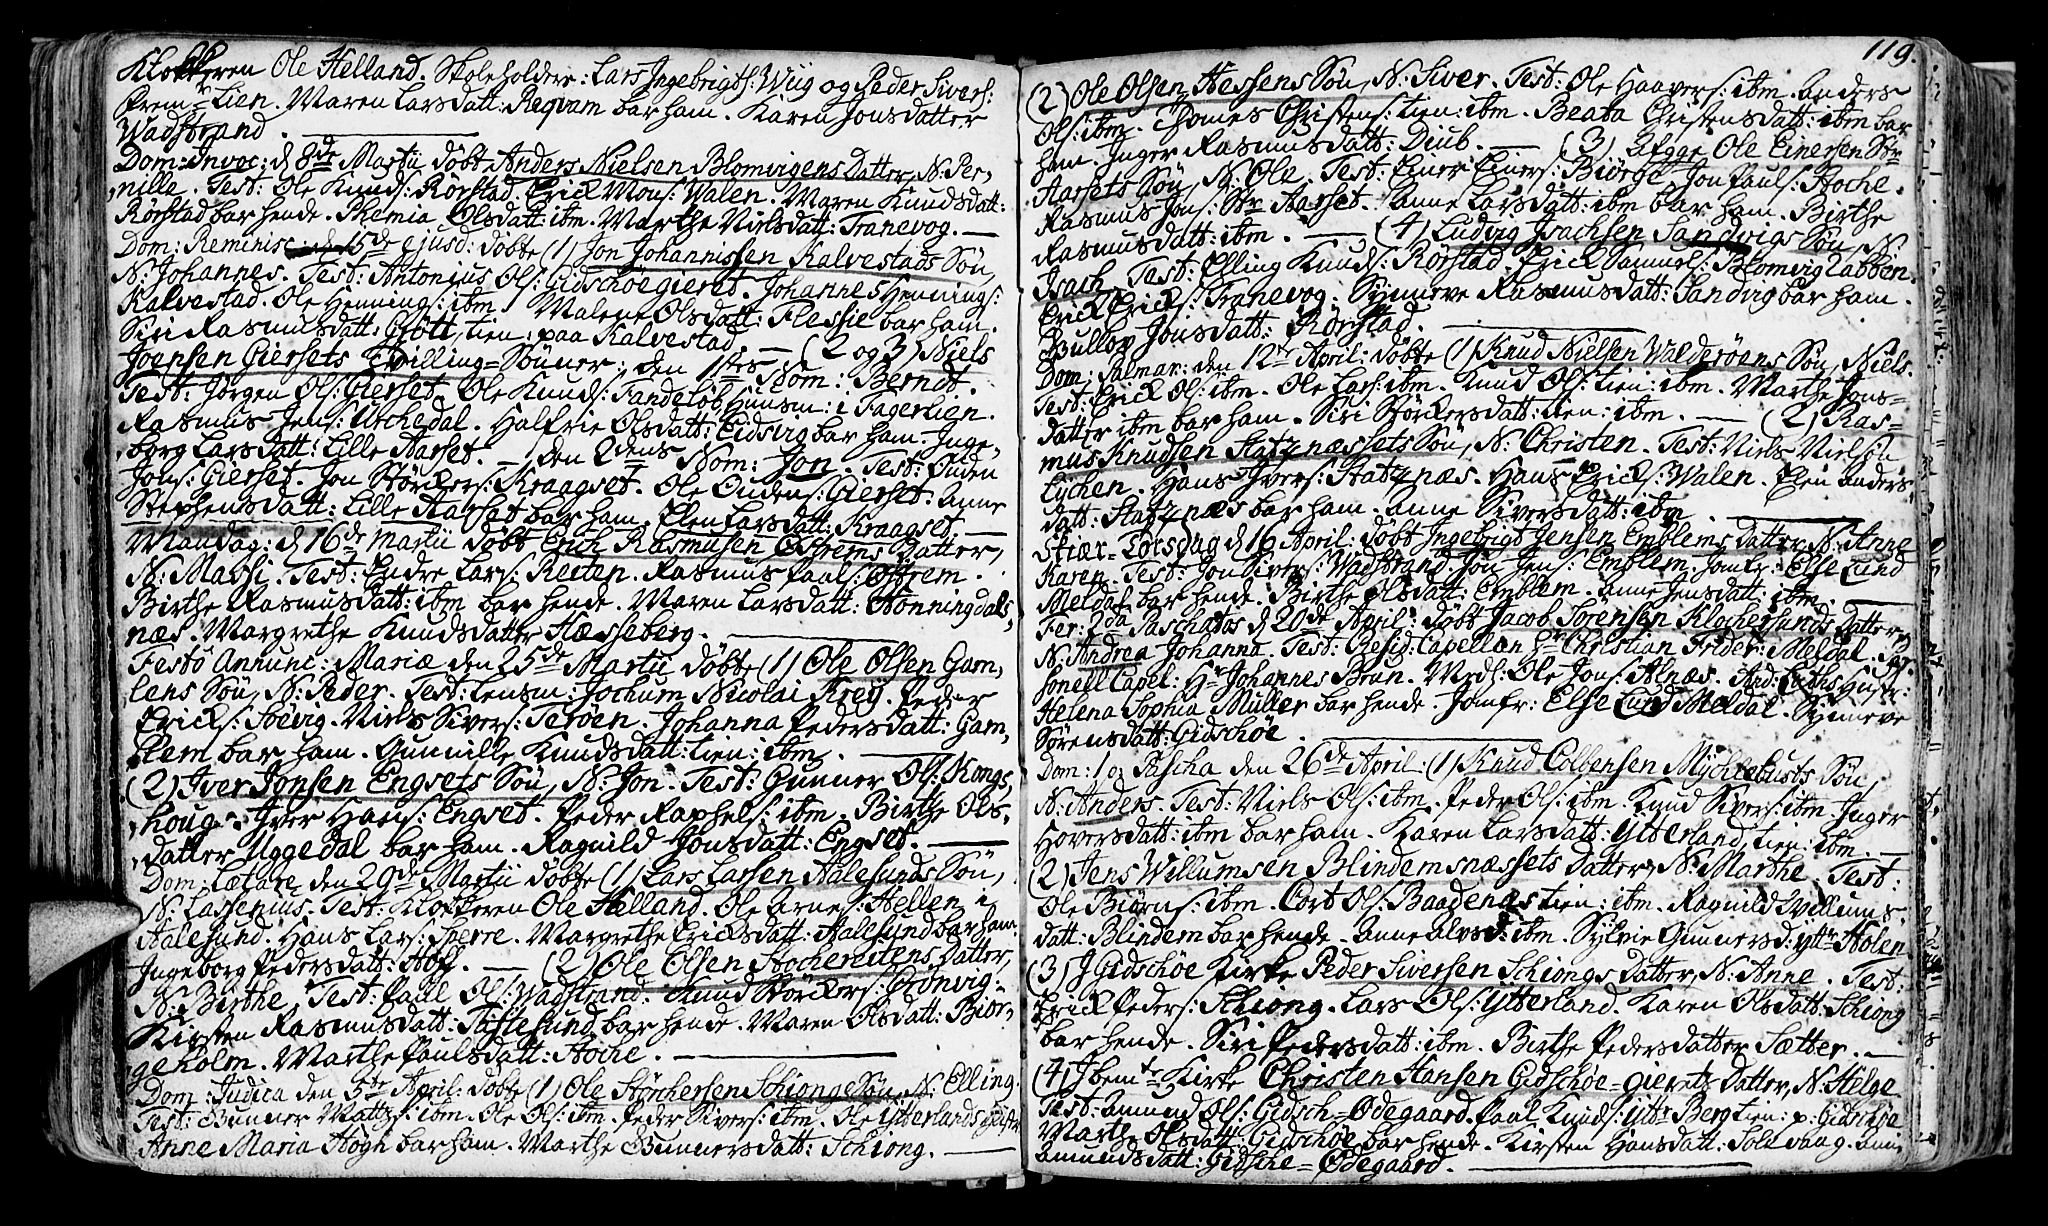 Klokkeren Ole Helland. Skoleholdere: Lars Ingebrigts: Wiig og Peder Sivers:
Frem Lien. Maren Larsdatt: Reqvam bar ham. Karen Jonsdatter
Wadstrand.
Dom: Invoc: d 8de Martii døbt Anders Nielsen Blomvigens Datter, N: Per-
nille. Test: Ole Knuds: Rørstad. Erick Mons: Walen. Maren Knudsdatt:
Rørstad bar hende. Phemia Olsdatt: ibm. Marthe Nielsdatt: Tranevog. —
Dom: Reminisc: 15de ejusd: døbte (1) Jon Johannissen Kalvestads Søn,
N: Johannes. Test: Antonius Ols: Gidschøegieret. Johannes Hennings:
Kalvestad. Ole Hennings: ibm. Malene Olsdatt: Flessie bar ham.
Siri Rasmusdatt: Grøtt, tien: paa Kalvestad. — (2 og 3) Niels
Joensen Giersets Tvilling-Sønner, den 1stes Nom: Berndt.
Test: Jørgen Ols: Gierset. Ole Knuds: Tandeløb, Huusm: i Fagerlien.
Rasmus Jens: Urchedal. Halfrie Olsdatt: Eidsvig bar ham. Inge-
borg Larsdatt: Lille Aarset. — den 2dens Nom: Jon. Test: Ouden
Jons: Gierset. Jon Størckers: Kraagset. Ole Oudens: Gierset. Anne
Stephensdatt: Lille Aarset bar ham. Elen Larsdatt: Kraagset.
Mandag: d 16de Martii døbt Erich Rasmusen Østrems Datter,
N: Massi. Test: Endre Lars: Reiten. Rasmus Pauls: Østrem.
Birthe Rasmusdatt: ibm bar hende. Maren Larsdatt: Honningdals-
næs. Margrethe Knudsdatter Hæsseberg.
Festo Annunc: Mariæ den 25de Martii døbte (1) Ole Olsen Gam-
lens Søn, N: Peder. Test: Lensm: Jochum Nicolai Kreÿ. Peder
Ericks: Søevig. Niels Sivers: Terøen. Johanna Pedersdatt: Gam-
lem bar ham. Gunnille Knudsdatt: tien: ibm.
(2) Iver Jonsen Engsets Søn, N: Jon. Test: Gunner Ols: Kongs-
houg. Iver Hans: Engset. Peder Raphels: ibm. Birthe Ols-
datter Uggedal bar ham. Ragnild Jonsdatt: Engset. —
Dom: Lætare den 29de Martii døbte (1) Lars Larsen Aalesunds Søn,
N: Lassenius. Test: Klokkeren Ole Helland. Ole Arnes: Hellen i
Aalesund. Hans Lars: Sperre. Margrethe Ericksdatt: Aalesund bar ham.
Ingeborg Pedersdatt: Hofl. — (2) Ole Olsen Hochereitens Datter,
N: Birthe. Test: Paul Ols: Wadstrand. Knud Størckers: Grønvig.
Kirsten Rasmusdatt: Taftesund bar hende. Maren Olsdatt: Biør-
geholm. Marthe Paulsdatt: Hoche.
Dom: Judica den 5te April: døbte (1) Ole Størchersen Schionge Søn, N: Elling.
Test: Gunner Matts: ibm. Ole Ols: ibm. Peder Sivers: ibm. Ole Ytterlands
Anne Maria Hogn bar ham. Marthe Gunnersdatt: Schiong. —
119.
(2) Ole Olsen Hessens Søn, N: Siver. Test: Ole Haavers: ibm. Anders
Ols: ibm. Thomes Christens: tien: ibm. Beata Christensdatt: ibm bar
ham. Inger Rasmusdatt: Diub. — (3) Afgge Ole Einersen Str
Aarsets Søn, N: Ole. Test: Einer Einers: Biørge. Jon Pauls: Hoche.
Rasmus Jons: Str Aarset. Anne Larsdatt: ibm bar ham. Birthe
Rasmusdatt: ibm. — (4) Ludvig Isachsen Sandvigs Søn, N:
Isach. Test: Elling Knuds: Rørstad. Erick Samuels: Blomvig Labben.
Erick Ericks: Tranevog. Synneve Rasmusdatt: Sandvig bar ham.
Gullov Jonsdatt: Rørstad.
Dom: Palmar: den 12te April: døbte (1) Knud Nielsen Walderøens Søn, Niels.
Test: Erick Ols: ibm. Ole Lars: ibm. Knud Ols: tien: ibm. Marthe Jons-
datter ibm bar ham. Siri Størckersdatt: tien: ibm. — (2) Ras-
mus Knudsen Statznæssets Søn, N: Christen. Test: Niels Nielsøn
Lychen. Hans Ivers: Statznæs. Hans Ericks: Walen. Elen Anders-
datt: Statznæs bar ham. Anne Siversdatt: ibm.
Skiær-Torsdag d 16 April: døbt Ingebrigt Jensen Emblems Datter, N: Anne
Karen. Test: Jon Sivers: Wadstrand. Jon Jens: Emblem. Jomfr: Else Lund
Meldal bar hende. Birthe Olsdatt: Emblem. Anne Jensdatt: ibm.
Fer: 2da Paschatos d 20de April: døbt Jacob Sørensen Klochersunds Datter,
N: Andrea Johanna. Test: Resid: Capellan Hr Christian Frider: Meldal.
sonell Capel: Hr Johannes Brun. Mads: Ole Jons: Alnæs. And: Hustr:
Helena Sophia Müller bar hende. Jomfr: Else Lund Meldal. Synneve
Sørensdatt: Gidschøe.
Dom: 1 p: Pascha den 26de April: (1) Knud Colbensen Mychebusts Søn,
N: Anders. Test: Niels Ols: ibm. Peder Ols: ibm. Knud Sivers: ibm. Inger
Hoversdatt: ibm bar ham. Karen Larsdatt: Ytterland, tien: ibm. —
(2) Jens Willumsen Blindemsnæssets Datter, N: Marthe. Test:
Ole Biørns: ibm. Cort Ols: Baadenæs tien: ibm. Ragnild Willums-
datt: Blindem bar hende. Anne Alvsd: ibm. Sylvie Gunnersd: Yttr Holen.
(3) I Gidschøe Kirke Peder Siversen Schiongs Datter, N: Anne. Test:
Erick Peders: Schiong. Lars Ols: Ytterland. Karen Olsdatt: Schiong
bar hende. Siri Pedersdatt: ibm. Birthe Pedersdatter Sætter. —
(4) Ibemte Kirke Christen Hansen Gidschøe-Gierets Datter, N: Helge
Test: Amund Ols: Gidsch-Ødegaard. Paul Knuds: Yttr Berg tien: p: Gidschøe
Marth Olsdatt: Gidschøe bar hende. Kirsten Hansdatt: Solevaag. Anne
Amundsdatt: Gidsche-Ødegaard.